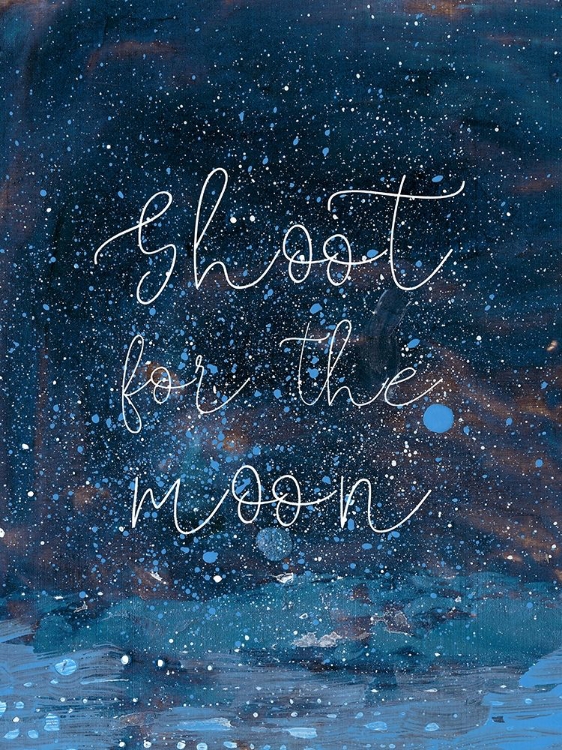 Shoot
for the
moon